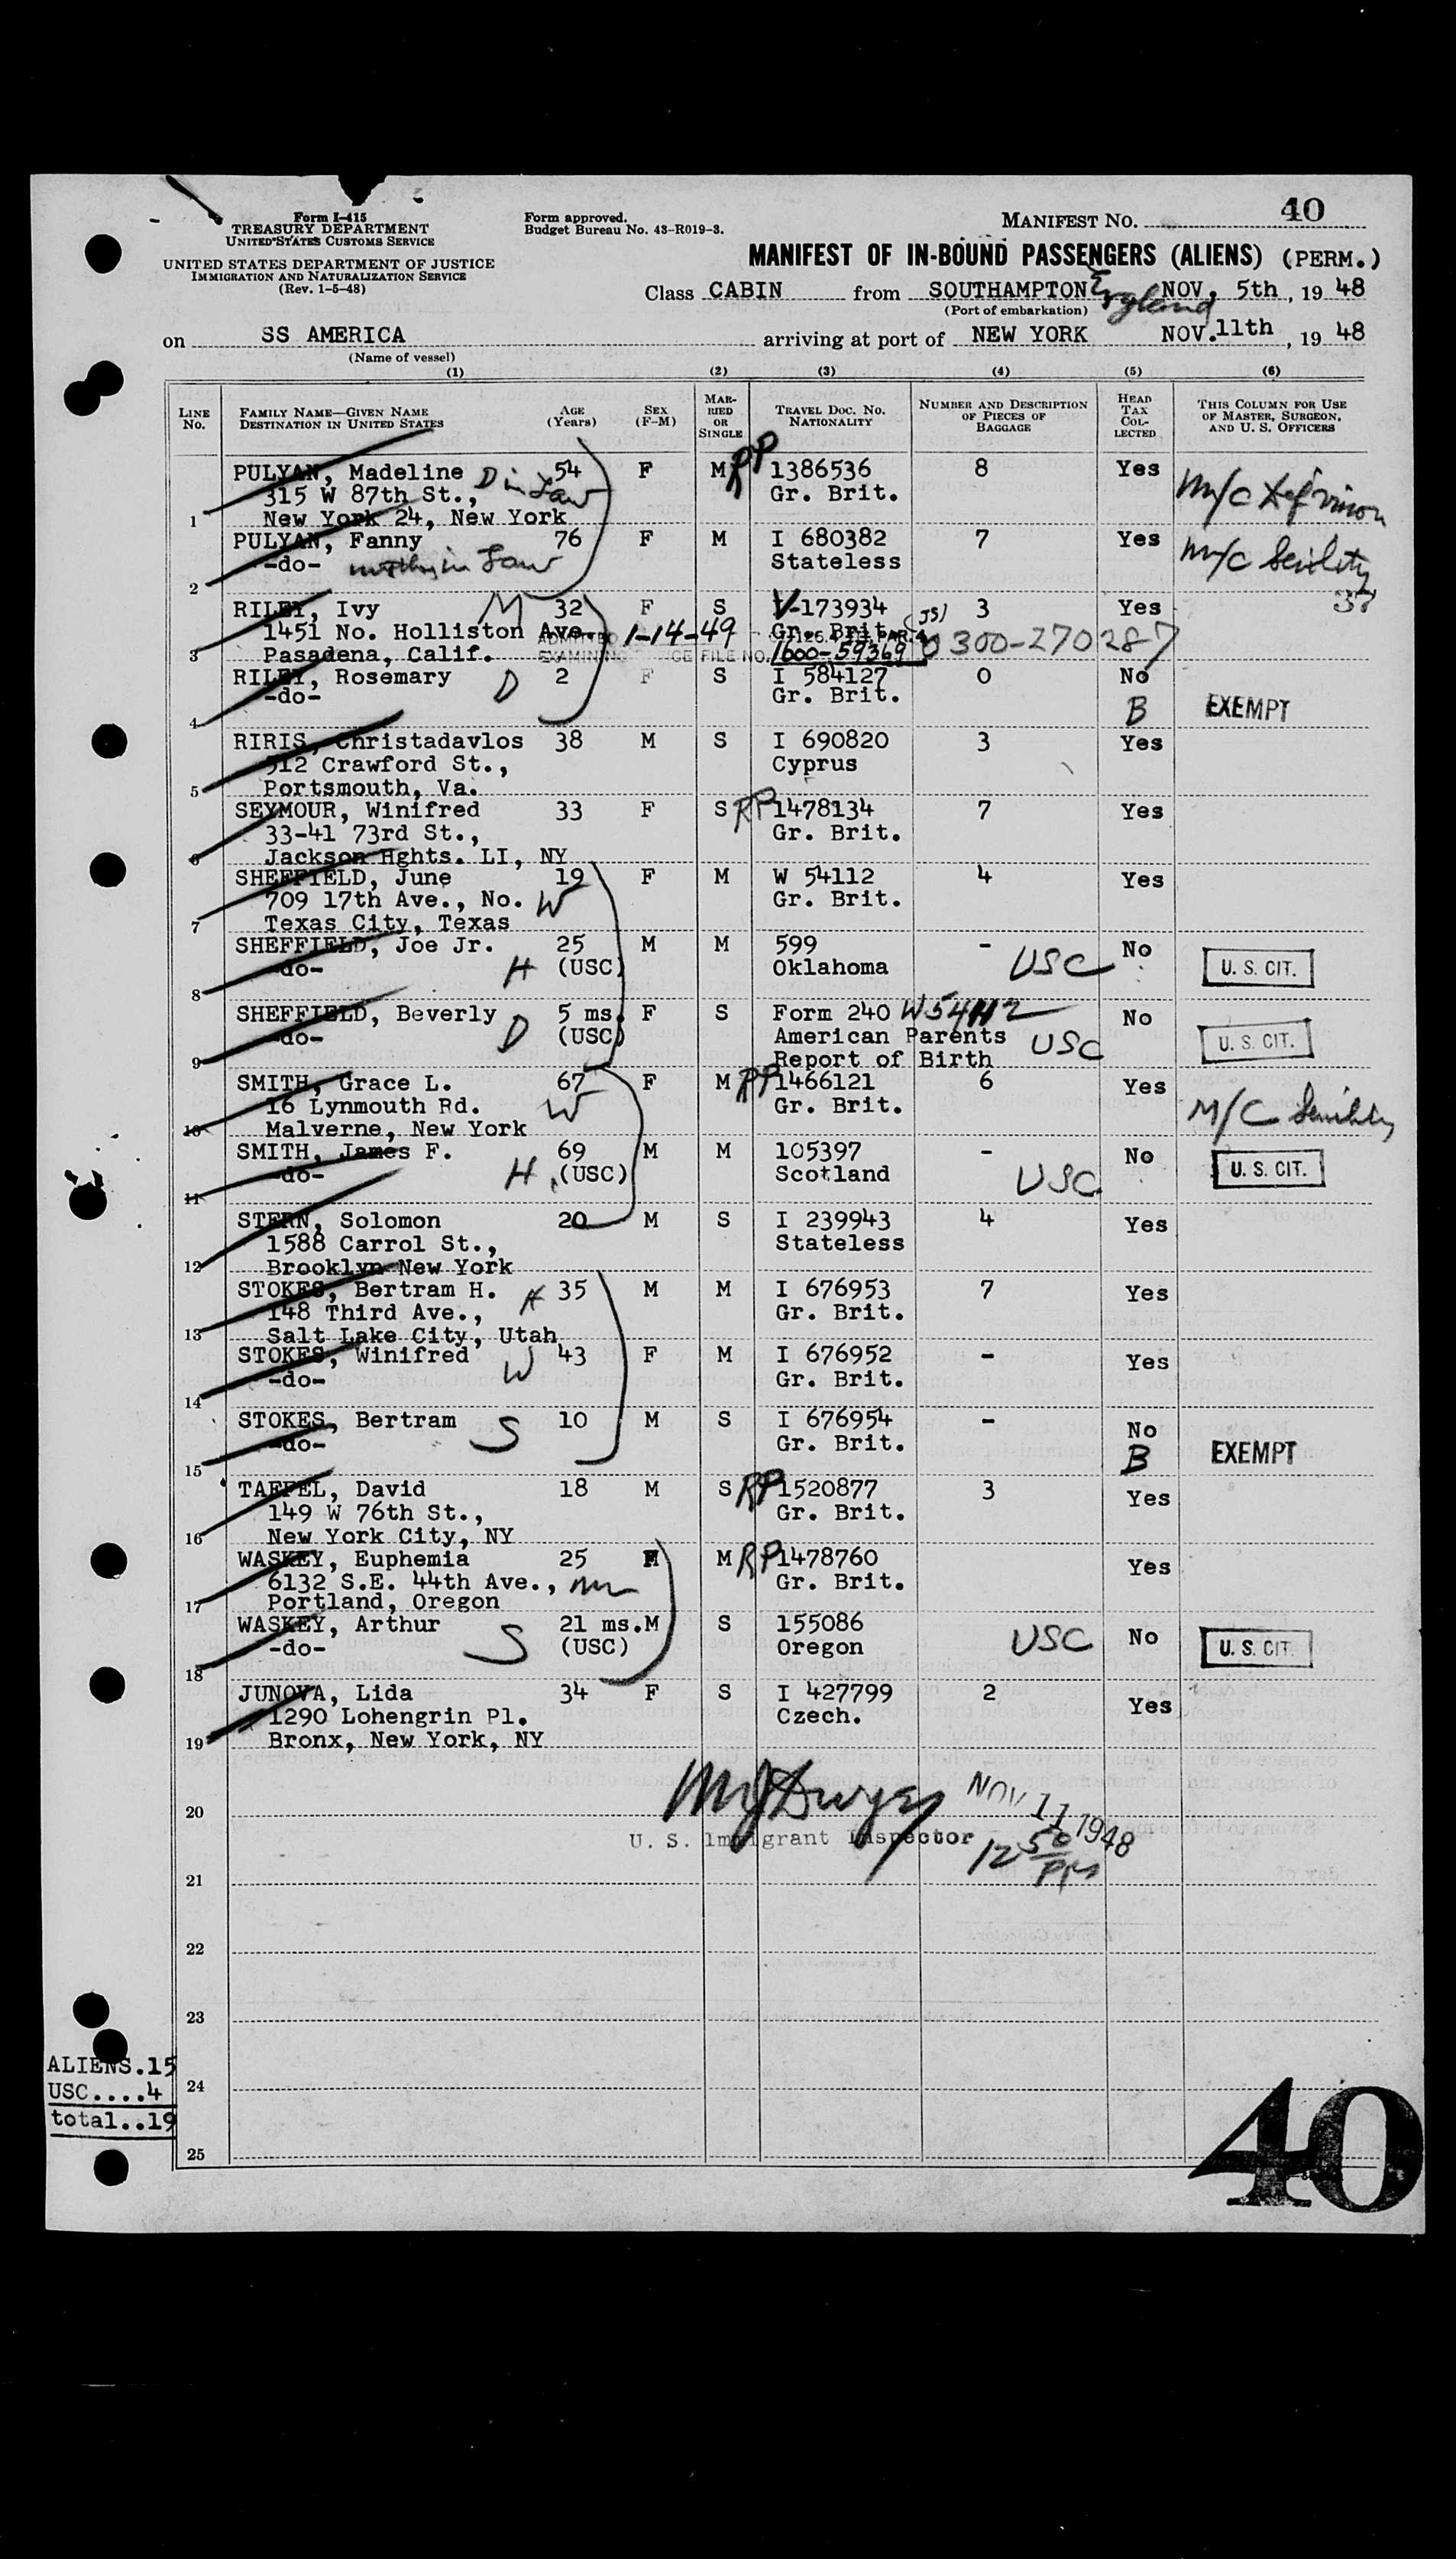 Form I-415
TREASURY DEPARTMENT
UNITED STATES CUSTOMS SERVICE
UNITED STATES DEPARTMENT OF JUSTICE
IMMIGRATION AND NATURALIZATION SERVICE
(Rev. 1-5-48)
Form approved.
Budget Bureau No. 43-R019-3.
MANIFEST NO. 40
MANIFEST OF IN-BOUND PASSENGERS (ALIENS) (PERM.)
Class CABIN from SOUTHAMPTON England NOV. 5th, 19 48
(Port of embarkation)
on SS AMERICA arriving at port of NEW YORK NOV. 11th, 19 48
(Name of vessel)
(1) (2) (3) (4) (5) (6)
LINE NO. FAMILY NAME—GIVEN NAME DESTINATION IN UNITED STATES AGE (Years) SEX (F-M) MARRIED OR SINGLE TRAVEL DOC. NO. NATIONALITY NUMBER AND DESCRIPTION OF PIECES OF BAGGAGE HEAD TAX COLLECTED THIS COLUMN FOR USE OF MASTER, SURGEON, AND U. S. OFFICERS
PULYAN, Madeline D in Law 54 F M RP 1386536 8 Yes
315 W 87th St., Gr. Brit. M/C Def vision
1 New York 24, New York
PULYAN, Fanny 76 F M I 680382 7 Yes M/C Senility
-do- mother in Law Stateless
2
RILEY, Ivy M 32 F S V-173934 (JS) 3 Yes 38
1451 No. Holliston Ave. ADMITTED 1-14-49 Gr. Brit. PAR.4 0300-270287
3 Pasadena, Calif. FILE NO. 1600-59369
RILEY, Rosemary D 2 F S I 584127 0 No
-do- Gr. Brit. B EXEMPT
4
RIRIS, Christadavlos 38 M S I 690820 3 Yes
512 Crawford St., Cyprus
5 Portsmouth, Va.
SEYMOUR, Winifred 33 F S RP 1478134 7 Yes
33-41 73rd St., Gr. Brit.
6 Jackson Hghts. LI, NY
SHEFFIELD, June 19 F M W 54112 4 Yes
709 17th Ave., No. W Gr. Brit.
7 Texas City, Texas
SHEFFIELD, Joe Jr. 25 M M 599 - No
-do- H (USC) Oklahoma USC U. S. CIT.
8
SHEFFIELD, Beverly 5 ms. F S Form 240 W54112 No
-do- D (USC) American Parents USC U. S. CIT.
9 Report of Birth
SMITH, Grace L. 67 F M RP 1466121 6 Yes
16 Lynmouth Rd. W Gr. Brit. M/C Senility
10 Malverne, New York
SMITH, James F. 69 M M 105397 - No
-do- H (USC) Scotland USC U. S. CIT.
11
STERN, Solomon 20 M S I 239943 4 Yes
1588 Carrol St., Stateless
12 Brooklyn New York
STOKES, Bertram H. H 35 M M I 676953 7 Yes
148 Third Ave., Gr. Brit.
13 Salt Lake City, Utah
STOKES, Winifred W 43 F M I 676952 - Yes
-do- Gr. Brit.
14
STOKES, Bertram S 10 M S I 676954 - No
-do- Gr. Brit. B EXEMPT
15
TAFFEL, David 18 M S RP 1520877 3 Yes
149 W 76th St., Gr. Brit.
16 New York City, NY
WASKEY, Euphemia 25 M RP 1478760 Yes
6132 S.E. 44th Ave., Gr. Brit.
17 Portland, Oregon
WASKEY, Arthur 21 ms. M S 155086 No
-do- S (USC) Oregon USC U. S. CIT.
18
JUNOVA, Lida 34 F S I 427799 2 Yes
1290 Lohengrin Pl. Czech.
19 Bronx, New York, NY
NOV 11 1948
20
U. S. Immigrant Inspector 12 50 PM
21
22
23
ALIENS.15
24
USC....4
total..19
25
40